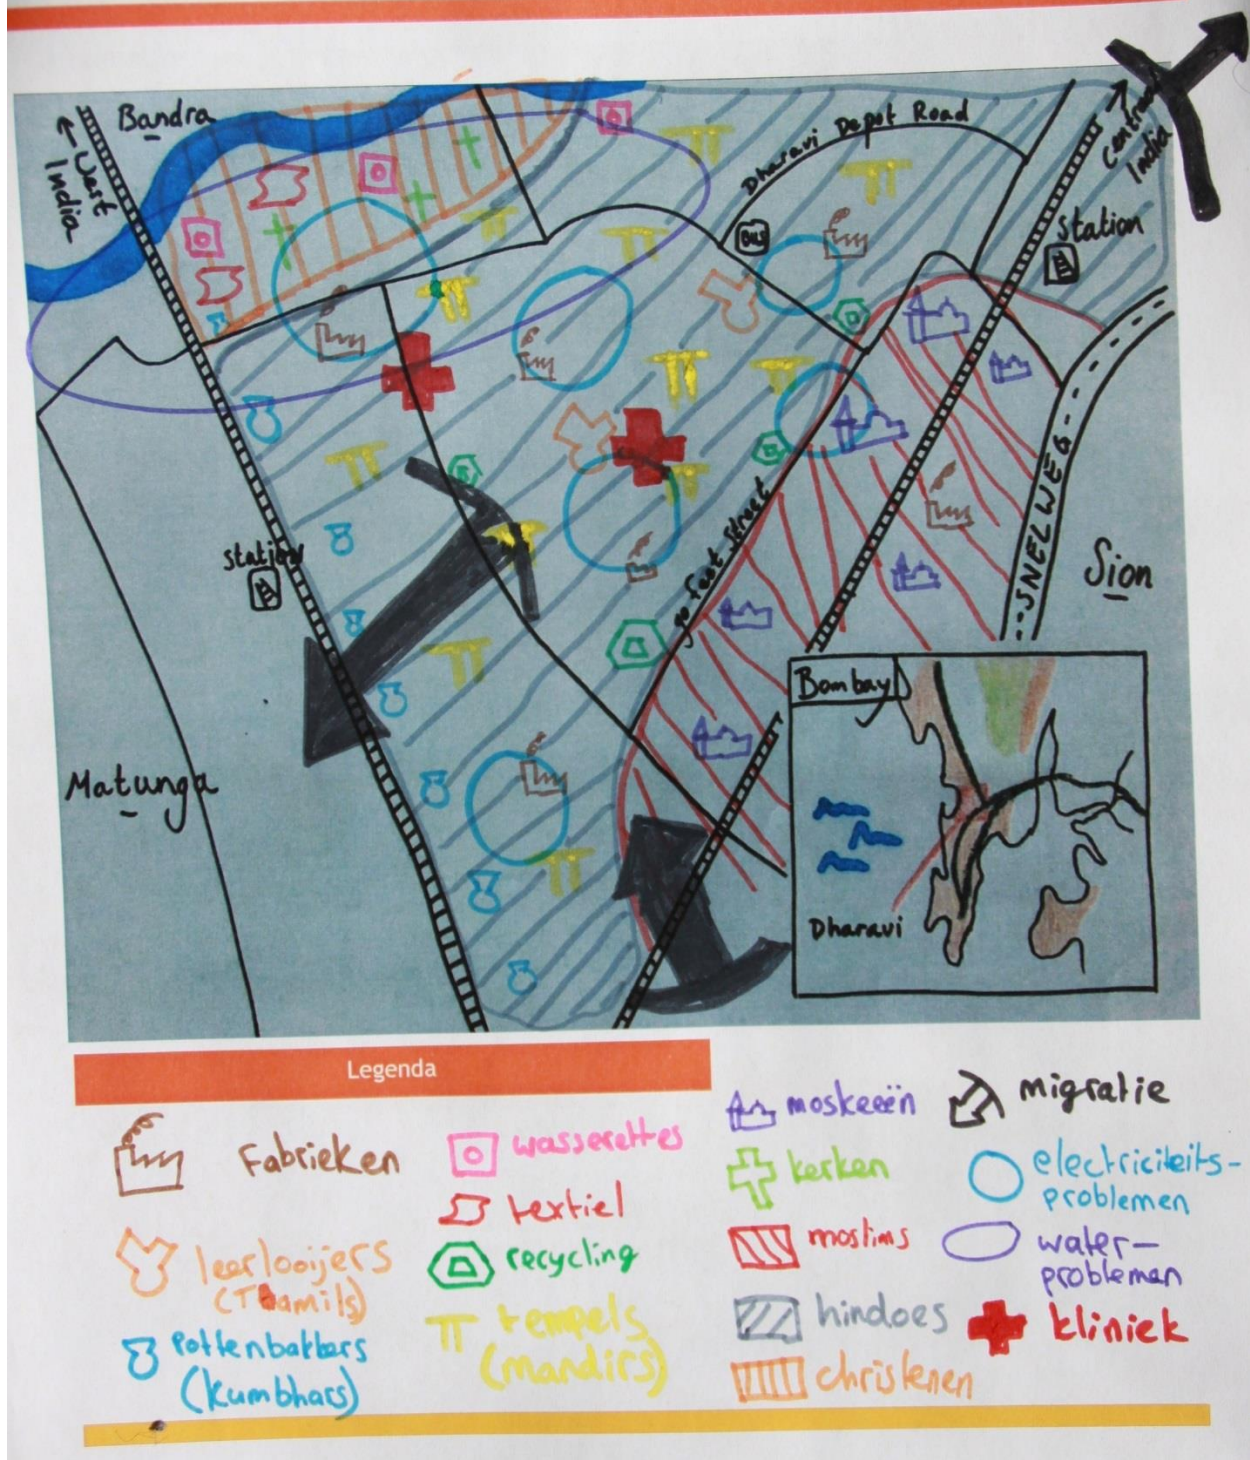 Bandra
← West
India
Dharavi Depot Road
Central
India
Station
BUS
station
90 feet street
SNELWEG
Sion
Matunga
Bombay
Dharavi
Legenda
Fabrieken
leerlooijers
(Thamils)
Pottenbakkers
(Kumbhars)
wasserettes
textiel
recycling
tempels
(mandirs)
moskeeën
kerken
moslims
hindoes
christenen
migratie
electriciteits-
problemen
water-
probleman
kliniek